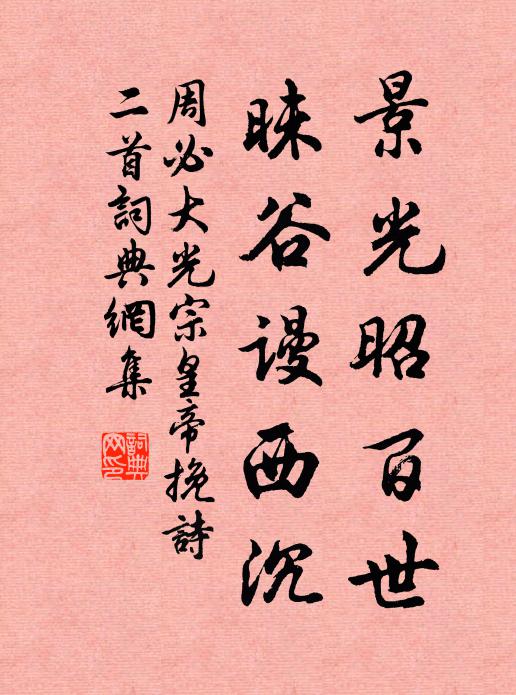 景光昭百世
昧谷谩西沉
周必大光宗皇帝挽詩
二首詞典網集
詞典網印